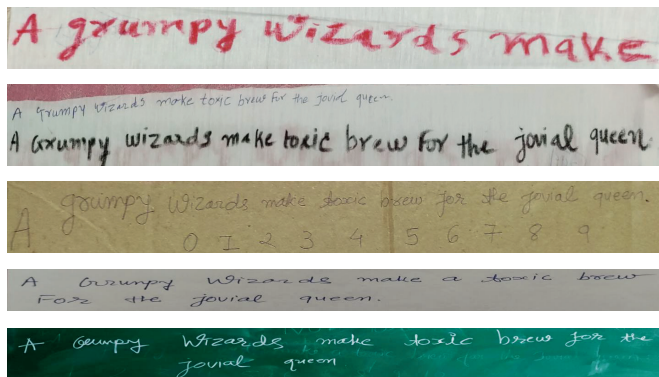 A grumpy wizards make
A Grumpy wizards make toxic brew for the jovial queen.
A Grumpy wizards make toxic brew For the jovial queen.
A grumpy Wizards make toxic brew for the jovial queen.
0 1 2 3 4 5 6 7 8 9
A Grumpy Wizards make a toxic brew
For the jovial queen.
A Grumpy Wizards make toxic brew for the
jovial queen